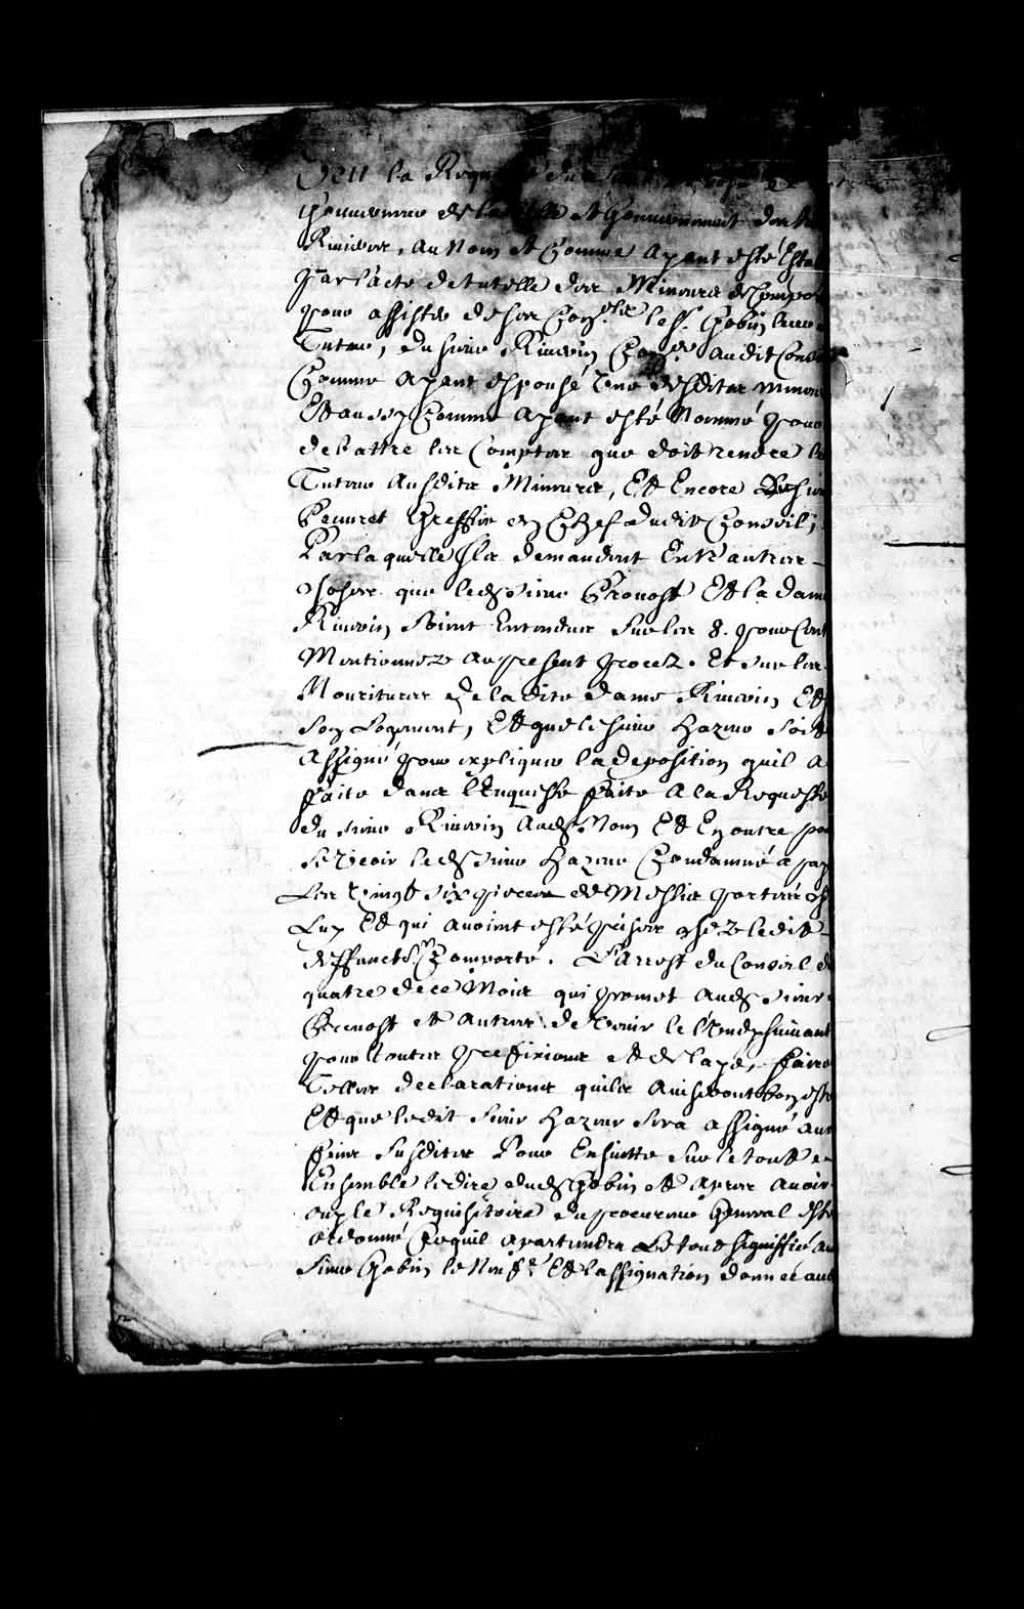 Veu la Requ
Gouverneur de la ville et Gouvernement des trois
Rivieres, au Nom et Comme ayant esté Esta
Par l'acte de tutelle des Mineurs de Compor
pour assister de ses Con.elz le Sr. Gobin leur
Tuteur, du sieur Riverin Con.er audit Cons
Comme ayant espousé l'une desdites mineu
Et aussy Comme ayant esté Nommé pour
debattre les Comptes que doit rendre le
Tuteur Ausdites Mineures, Et Encore du sieur
Peuvret Greffier en Chef dudit Conseil;
Par laquelle Ils demandent Entr'autres
choses que led. sieur Prevost Et la dame
Riverin Soient Entendus sur les 8. pour Cent
Mentionnez au present procez. Et sur les
Nouritures de la dite dame Riverin Et
son Logement, Et que le sieur hazeur soit
Assigné pour expliquer la deposition quil a
faite dans l'Enqueste faite A la Requeste
du sieur Riverin Aud. Nom Et En outre pou
se Veoir led. sieur hazeur Condamné a pay
Les Vingt six pieces de portées ch
Luy Et qui avoient esté prises chez ledit
deffunct Sr. Comporté. L'arrest du Conseil du
quatre de ce Mois qui permet aud. sieur
Prevost et autres de Venir le lundy suivant
pour toutes prefixions et delays, faire
Telles declarations quils aviseront bon estre
Et que ledit sieur hazeur sera assigné aux
fins susdites Pour Ensuitte sur le tout e
Ensemble le dire dud. Gobin et Apres avoir
ouy le Requisitoire du procureur General estre
ordonné Ce quil apartiendra Le tout signiffié au
sieur Gobin le Neuf.e Et l'assignation donnée au